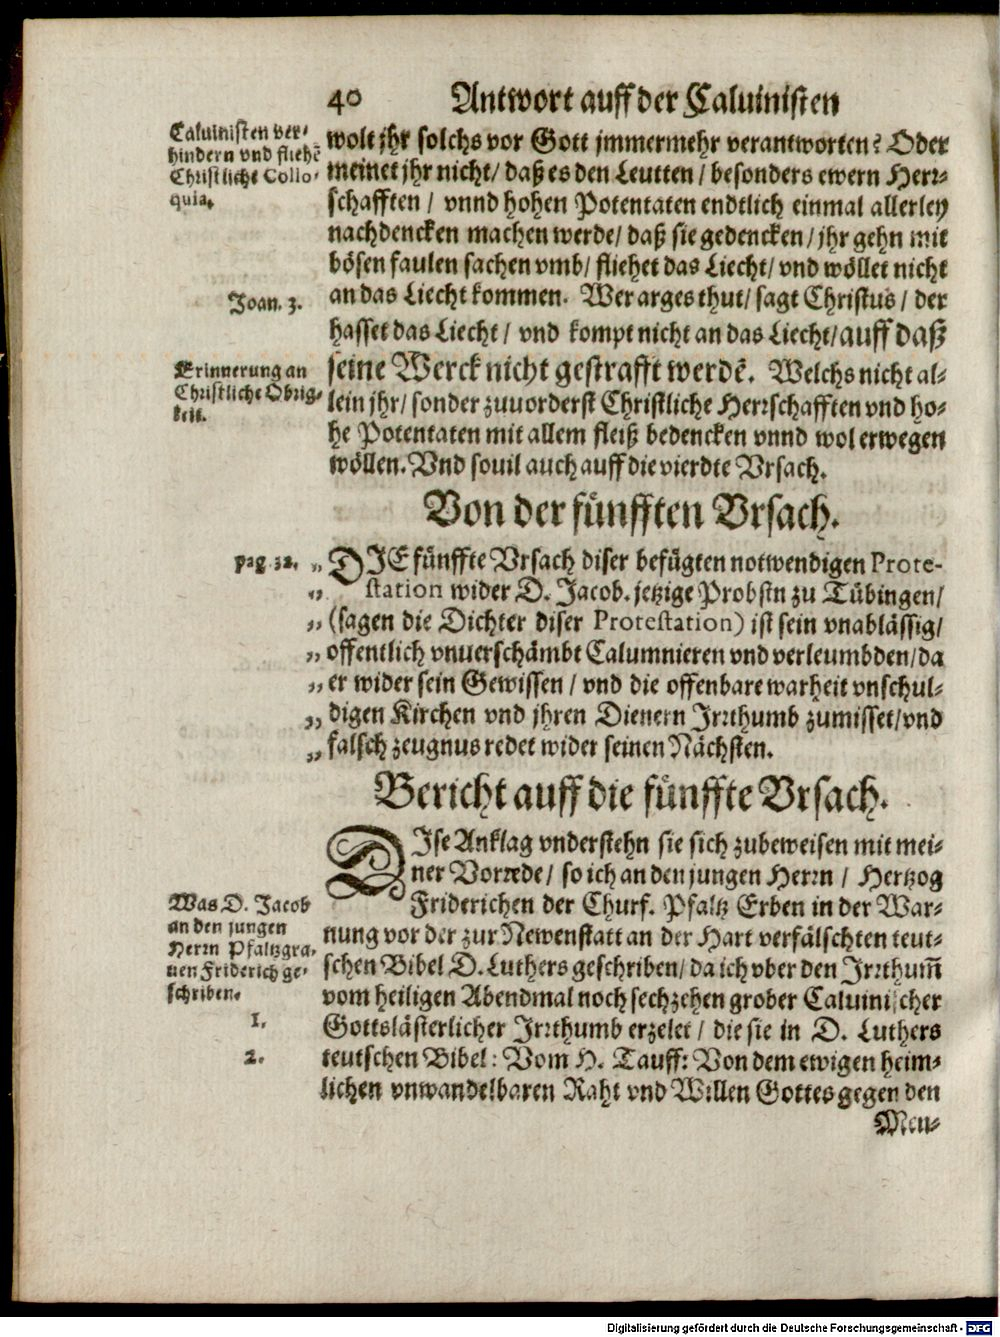 40 Antwort auff der Caluinisten
Caluinisten ver-
hindern vnd fliehẽ
Christliche Collo-
quia.
wolt jhr solchs vor Gott jmmermehr verantworten? Oder
meinet jhr nicht/ daß es den Leutten/ besonders ewern Herr-
schafften/ vnnd hohen Potentaten endtlich einmal allerley
nachdencken machen werde/ daß sie gedencken/ jhr gehn mit
bösen faulen sachen vmb/ fliehet das Liecht/ vnd wöllet nicht
Joan. 3.
an das Liecht kommen. Wer arges thut/ sagt Christus/ der
hasset das Liecht/ vnd kompt nicht an das Liecht/ auff daß
Erinnerung an
Christliche Obrig-
keit.
seine Werck nicht gestrafft werdẽ. Welchs nicht al-
lein jhr/ sonder zuuorderst Christliche Herrschafften vnd ho-
he Potentaten mit allem fleiß bedencken vnnd wol erwegen
wöllen. Vnd souil auch auff die vierdte Vrsach.
Von der fünfften Vrsach.
pag. 32.
„ DIE fünffte Vrsach diser befügten notwendigen Prote-
„ station wider D. Jacob. jetzige Probstn zu Tübingen/
„ (sagen die Dichter diser Protestation) ist sein vnablässig/
„ offentlich vnuerschämbt Calumnieren vnd verleumbden/ da
„ er wider sein Gewissen/ vnd die offenbare warheit vnschul-
„ digen Kirchen vnd jhren Dienern Irrthumb zumisset/ vnd
„ falsch zeugnus redet wider seinen Nächsten.
Bericht auff die fünffte Vrsach.
DIse Anklag vnderstehn sie sich zubeweisen mit mei-
ner Vorrede/ so ich an den jungen Herrn/ Hertzog
Was D. Jacob
an den jungen
Herrn Pfaltzgra-
uen Friderich ge-
schriben.
Friderichen der Churf. Pfaltz Erben in der War-
nung vor der zur Newenstatt an der Hart verfälschten teut-
schen Bibel D. Luthers geschriben/ da ich vber den Irrthum̃
vom heiligen Abendmal noch sechzehen grober Caluinischer
1.
Gottslästerlicher Irrthumb erzelet/ die sie in D. Luthers
2.
teutschen Bibel: Vom H. Tauff: Von dem ewigen heim-
lichen vnwandelbaren Raht vnd Willen Gottes gegen den
Men-
Digitalisierung gefördert durch die Deutsche Forschungsgemeinschaft - DFG